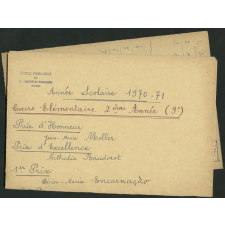 Année Scolaire 1970-71
Cours Elémentaire 2ème Année (9e)
Prix d'Honneur
Jean-Marie Moller
Prix d'Excellence
Nathalie Baudinot
1er Prix
Maria Encarnação